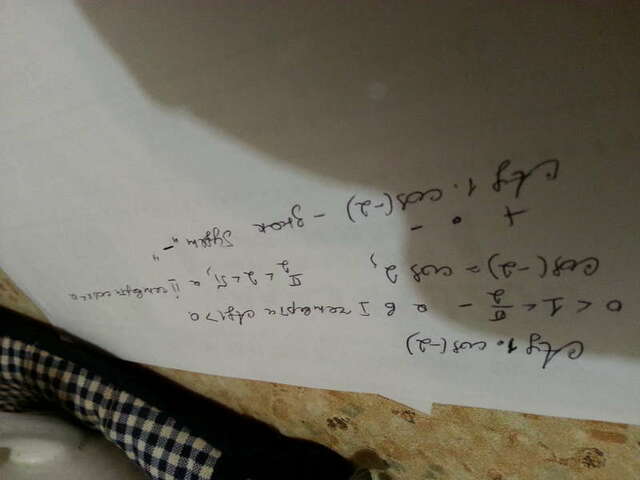 ctg 1 · cos(-2)
0 < 1 < π/2 - а в I четверти ctg1 > 0
cos(-2) = cos 2, π/2 < 2 < π, а II четверти cos x < 0
+ · -
ctg 1 · cos(-2) - знак будет „-"